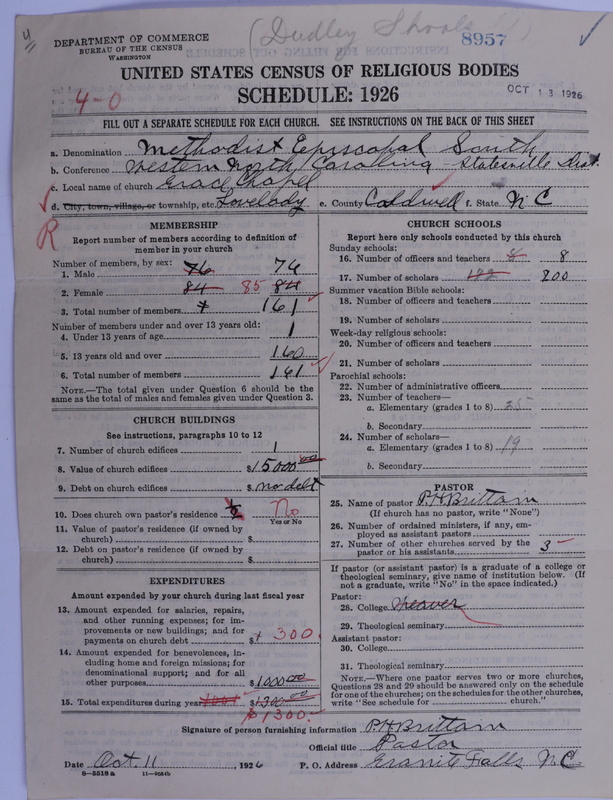 4
(Dudley Shoals)
8957
DEPARTMENT OF COMMERCE
BUREAU OF THE CENSUS
WASHINGTON
UNITED STATES CENSUS OF RELIGIOUS BODIES
SCHEDULE: 1926
4-0
OCT 13 1926
FILL OUT A SEPARATE SCHEDULE FOR EACH CHURCH. SEE INSTRUCTIONS ON THE BACK OF THIS SHEET
a. Denomination Methodist Episcopal South
b. Conference Western North Carolina - Statesville Dist.
c. Local name of church Grace Chapel
d. City, town, village, or township, etc. Lovelady e. County Caldwell f. State N C
R
MEMBERSHIP
Report number of members according to definition of
member in your church
Number of members, by sex:
1. Male 76 76
2. Female 84 85 84
3. Total number of members 161
Number of members under and over 13 years old:
4. Under 13 years of age 1
5. 13 years old and over 160
6. Total number of members 161
NOTE.—The total given under Question 6 should be the
same as the total of males and females given under Question 3.
CHURCH BUILDINGS
See instructions, paragraphs 10 to 12
7. Number of church edifices 1
8. Value of church edifices $15000 00
9. Debt on church edifices $ no debt
10. Does church own pastor's residence No
Yes or No
11. Value of pastor's residence (if owned by
church) $
12. Debt on pastor's residence (if owned by
church) $
EXPENDITURES
Amount expended by your church during last fiscal year
13. Amount expended for salaries, repairs,
and other running expenses; for im-
provements or new buildings; and for
payments on church debt $ 300
14. Amount expended for benevolences, in-
cluding home and foreign missions; for
denominational support; and for all
other purposes $1000 00
15. Total expenditures during year $1300 00
$1300
CHURCH SCHOOLS
Report here only schools conducted by this church
Sunday schools:
16. Number of officers and teachers 8 8
17. Number of scholars 200
Summer vacation Bible schools:
18. Number of officers and teachers
19. Number of scholars
Week-day religious schools:
20. Number of officers and teachers
21. Number of scholars
Parochial schools:
22. Number of administrative officers
23. Number of teachers—
a. Elementary (grades 1 to 8) 25
b. Secondary
24. Number of scholars—
a. Elementary (grades 1 to 8) 19
b. Secondary
PASTOR
25. Name of pastor P.H. Brittain
(If church has no pastor, write "None")
26. Number of ordained ministers, if any, em-
ployed as assistant pastors
27. Number of other churches served by the
pastor or his assistants 3
If pastor (or assistant pastor) is a graduate of a college or
theological seminary, give name of institution below. (If
not a graduate, write "No" in the space indicated.)
Pastor:
28. College Weaver
29. Theological seminary
Assistant pastor:
30. College
31. Theological seminary
NOTE.—Where one pastor serves two or more churches,
Questions 28 and 29 should be answered only on the schedule
for one of the churches; on the schedules for the other churches,
write "See schedule for church."
Signature of person furnishing information P.H. Brittain
Official title Pastor
Date Oct. 11, 1926 P. O. Address Granite Falls N C
8—5518a 11—9034b